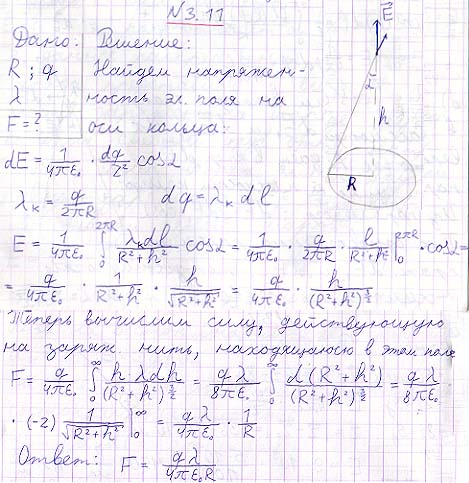 N 3.11
Дано: Решение:
R ; q Найдем напряжен-
λ ность эл. поля на
F = ? оси кольца:
dE = 1/(4πε₀) · dq/r² cosα
λₖ = q/(2πR) dq = λₖ dl
E = 1/(4πε₀) ∫₀^{2πR} λₖdl/(R²+h²) cosα = 1/(4πε₀) · q/(2πR) · l/(R²+h²) |₀^{2πR} · cosα =
= q/(4πε₀) · 1/(R²+h²) · h/√(R²+h²) = q/(4πε₀) · h/(R²+h²)^{3/2}
Теперь вычислим силу, действующую
на заряж нить, находящаюся в этом поле
F = q/(4πε₀) ∫₀^∞ hλdh/(R²+h²)^{3/2} = qλ/(8πε₀) ∫₀^∞ d(R²+h²)/(R²+h²)^{3/2} = qλ/(8πε₀) ·
· (-2) 1/√(R²+h²) |₀^∞ = qλ/(4πε₀) · 1/R
Ответ: F = qλ/(4πε₀R)
E
α
h
R